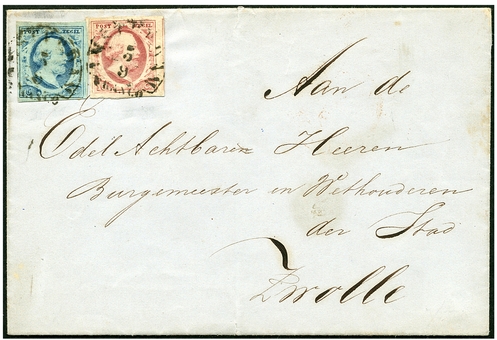 POST ZEGEL POST ZEGEL
Aan de
Edel Achtbaren Heeren
Burgemeester en Wethouderen
der Stad
Zwolle